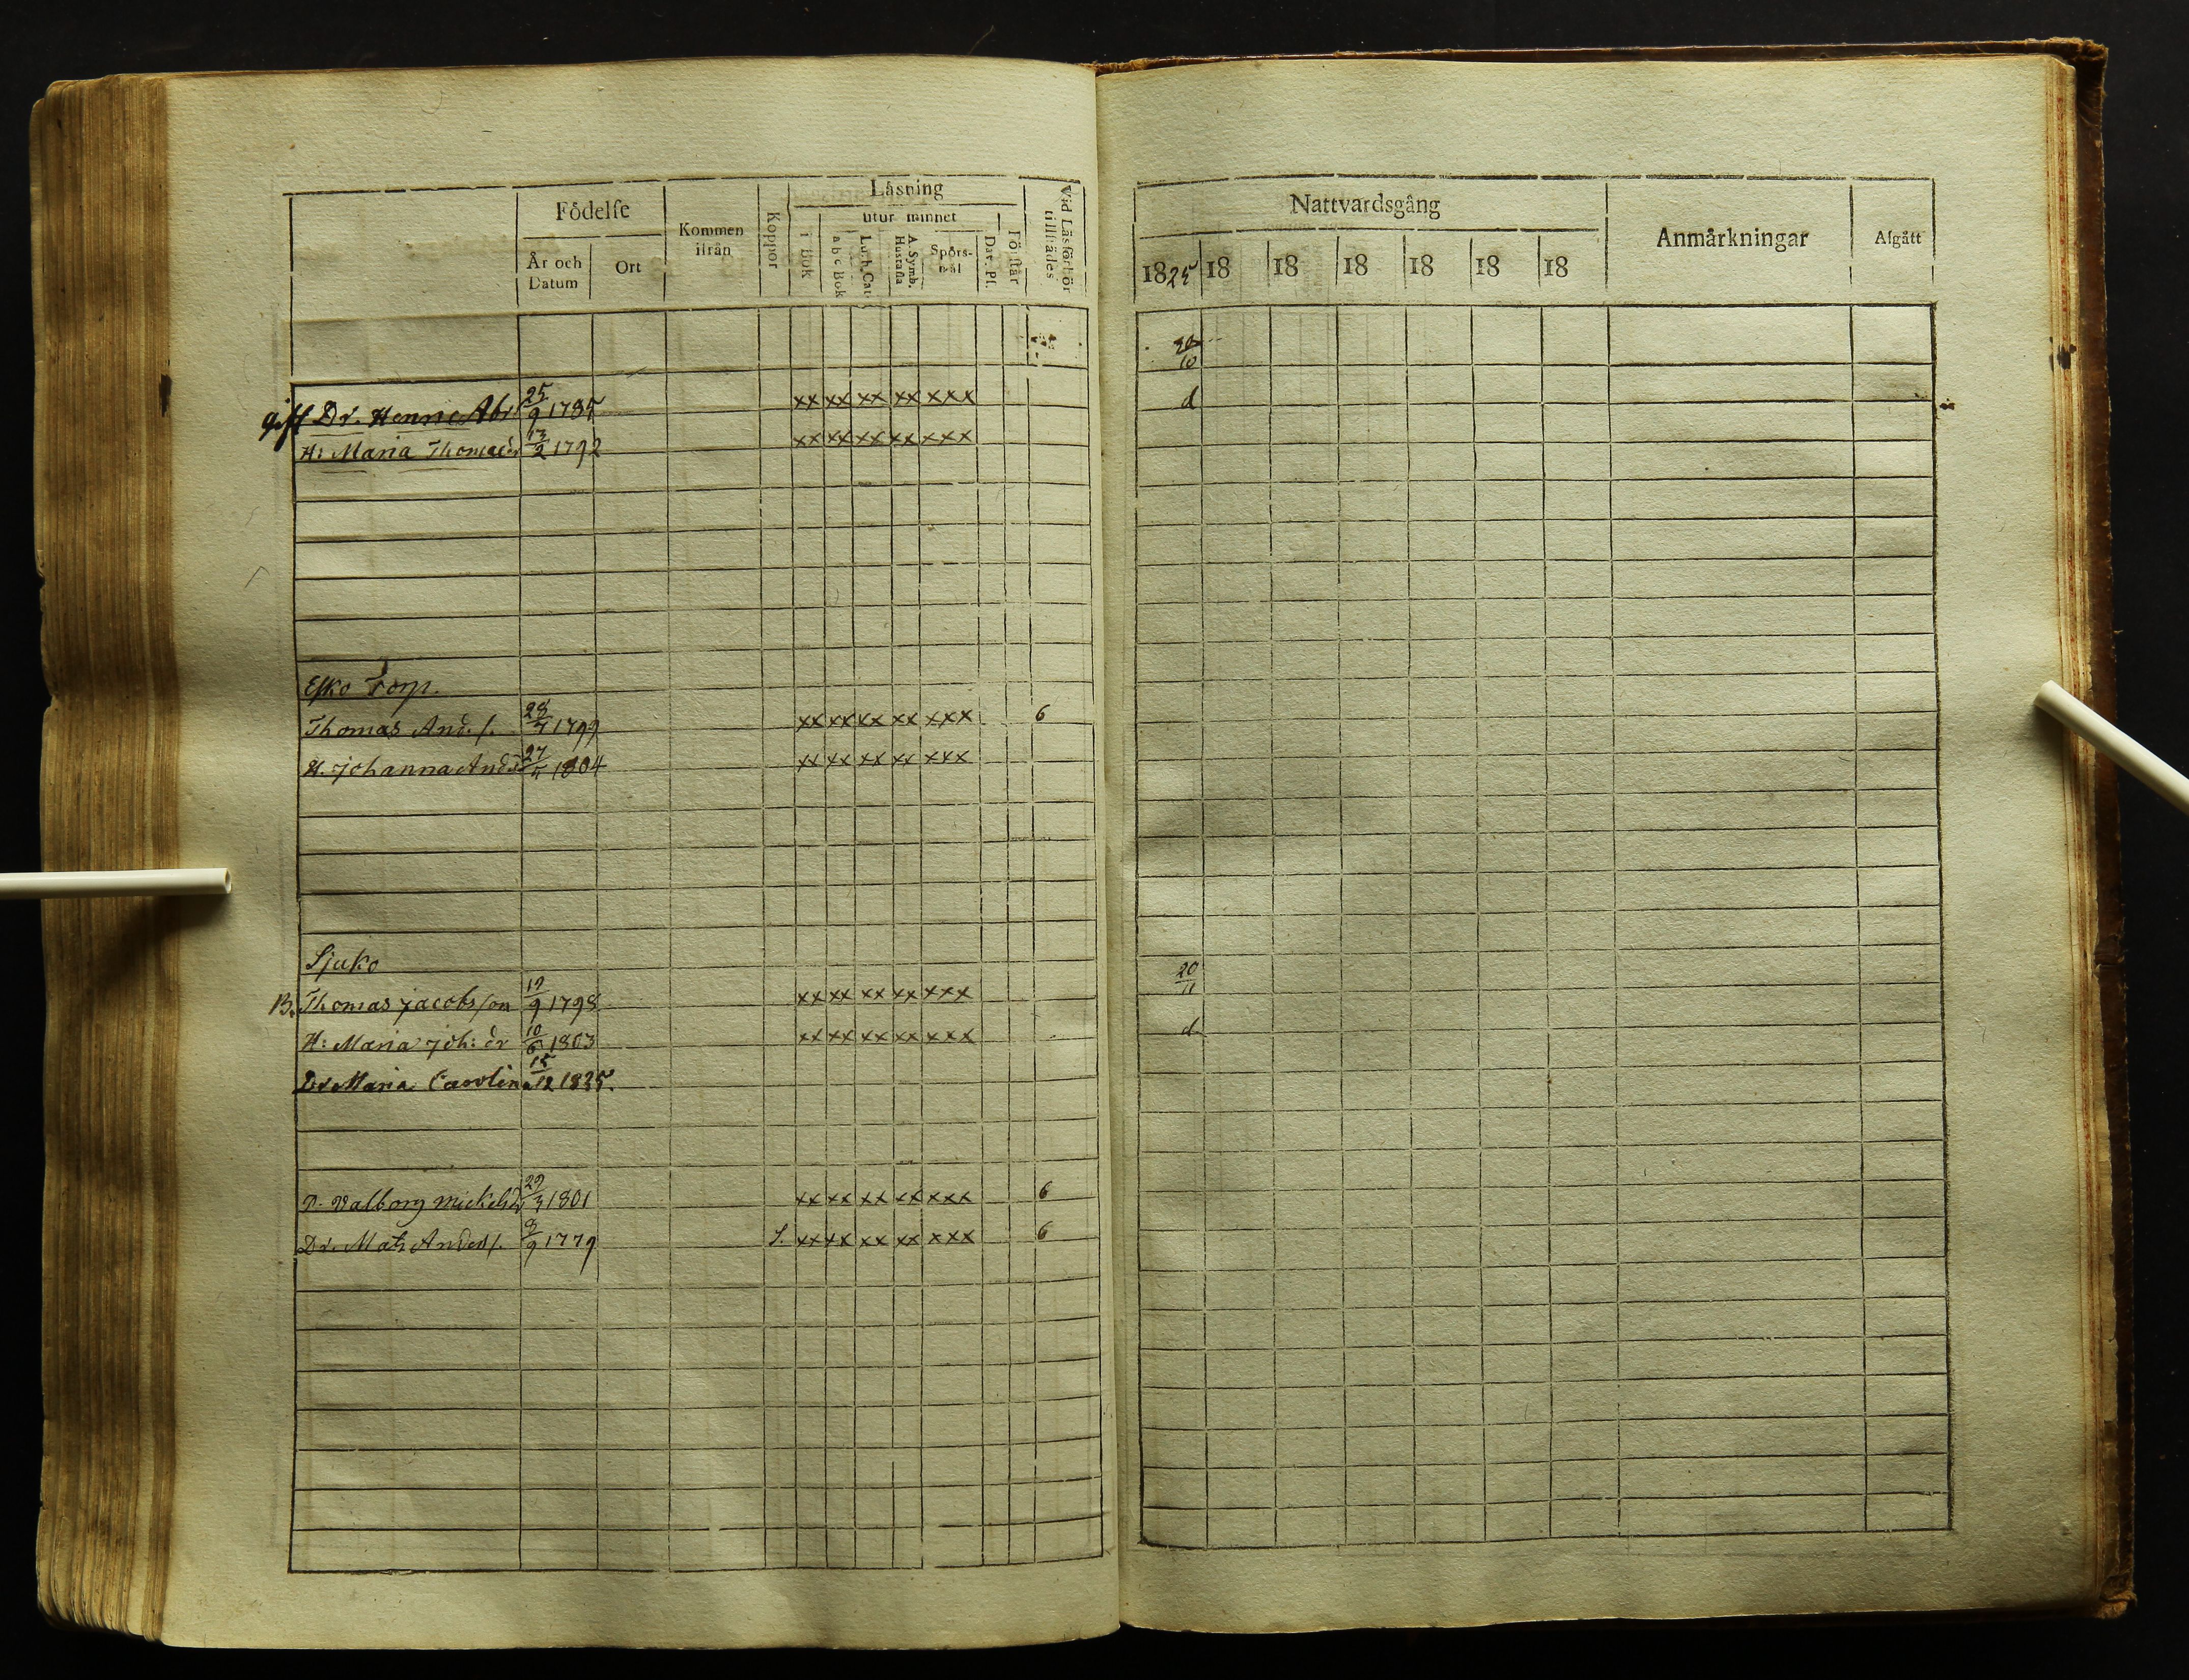 Läsning
Födelse
utur minnet
Kommen ifrån
Koppor
Vid Läsförhör tillstädes
År och Datum
Ort
i Bok
a b c Bok
Luth. Cat.
A. Symb. Hustafla
Spörs-mål
Dav. Ps.
Förstår
gift Dr. Henric Abr 25/9 1785 xx xx xx xx xxx
H: Maria Thomædr 13/2 1792 xx xx xx xx xxx
Esko Torp.
Thomas And.s. 28/4 1799 xx xx xx xx xxx 6
H. Johanna Andsd 27/5 1804 xx xx xx xx xxx
Sjuko
B. Thomas Jacobsson 19/9 1798 xx xx xx xx xxx
H: Maria Joh: dr 10/6 1803 xx xx xx xx xxx
Dr Maria Carolina 15/12 1825.
P. Valborg Mickelsd 29/3 1801 xx xx xx xx xxx 6
Dr. Mats Anders. 8/9 1779 S. xx xx xx xx xxx 6
Nattvardsgång
Anmärkningar
Afgått
1825 18 18 18 18 18 18
20/10
d
20/11
d